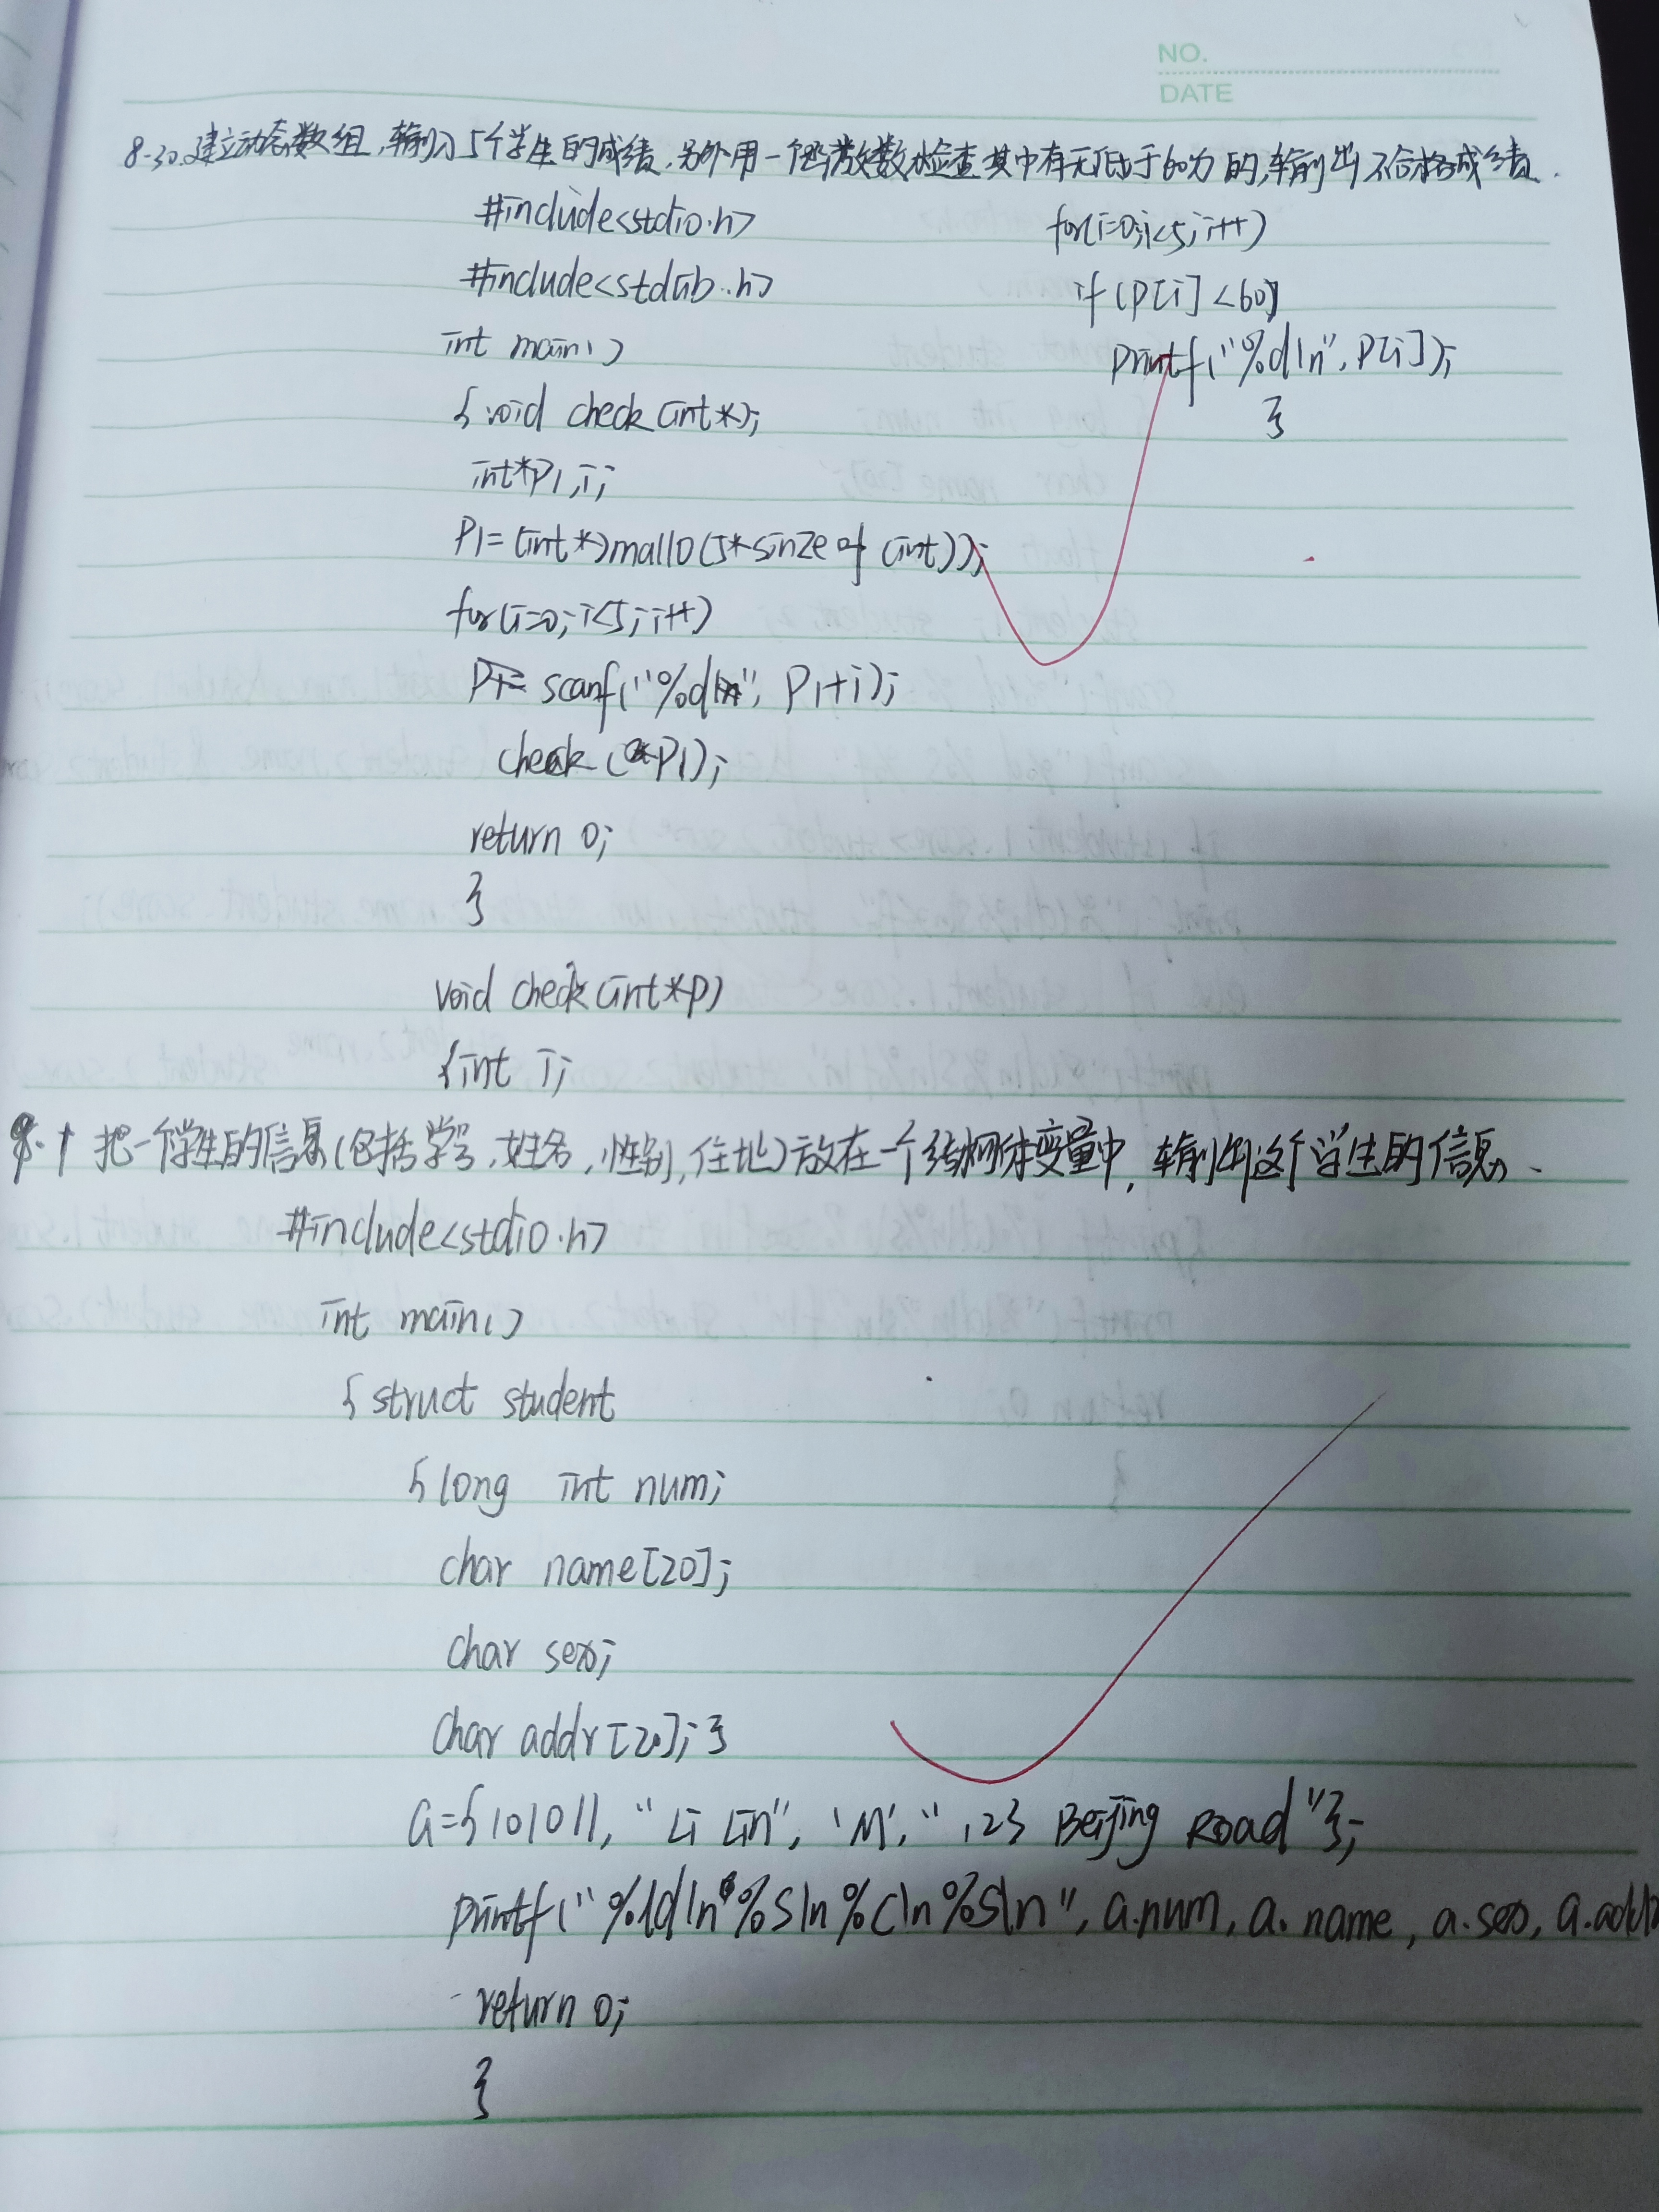 NO.
DATE
8-30.建立动态数组,输入5个学生的成绩,另外用一个函数检查其中有无低于60分的,输出不合格成绩.
#include<stdio.h>
#include<stdlib.h>
int main()
{ void check(int*);
int*P1,i;
P1=(int*)mallo(5*sinze of (int));
for(i=0;i<5;i++)
scanf("%d", P1+i);
check(P1);
return 0;
}
void check(int*p)
{int i;
for(i=0;i<5;i++)
if(P[i]<60)
printf("%d\n",P[i]);
}
9.1 把一个学生的信息(包括学号,姓名,性别,住地)放在一个结构体变量中,输出这个学生的信息、
#include<stdio.h>
int main()
{ struct student
{ long int num;
char name[20];
char sex;
char addr[20];}
a={10101, "Li Lin", 'M', "123 Beijing Road"};
printf("%ld\n%s\n%c\n%s\n", a.num, a.name, a.sex, a.addr
return 0;
}